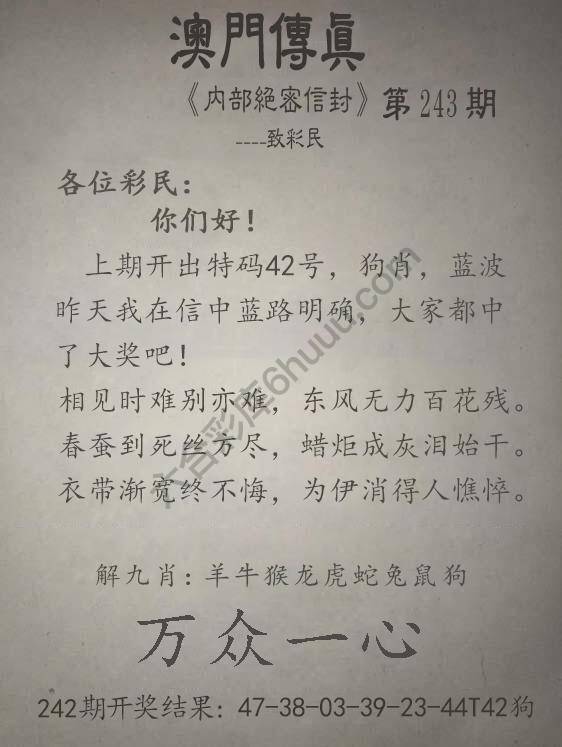 澳門傳眞
《内部絕密信封》第243期
----致彩民
各位彩民：
你们好！
上期开出特码42号，狗肖，蓝波
昨天我在信中蓝路明确，大家都中
了大奖吧！
相见时难别亦难，东风无力百花残。
春蚕到死丝方尽，蜡炬成灰泪始干。
衣带渐宽终不悔，为伊消得人憔悴。
解九肖：羊牛猴龙虎蛇兔鼠狗
万众一心
242期开奖结果：47-38-03-39-23-44T42狗
六合彩库6huuu.com